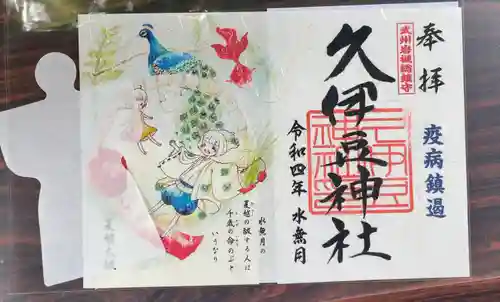 奉拝
武州岩槻總鎮守
久伊豆神社
疫病鎮遏
令和四年 水無月
水無月の
夏越の祓する人は
千歳の命のぶと
いうなり